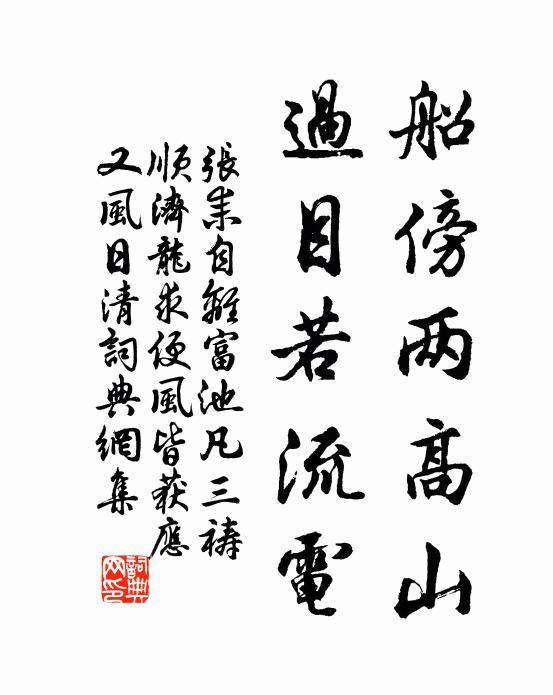 船傍两高山
過目若流電
張耒自離富池凡三禱
順濟龍求便風皆获應
又風日清詞典網集
詞典
网印